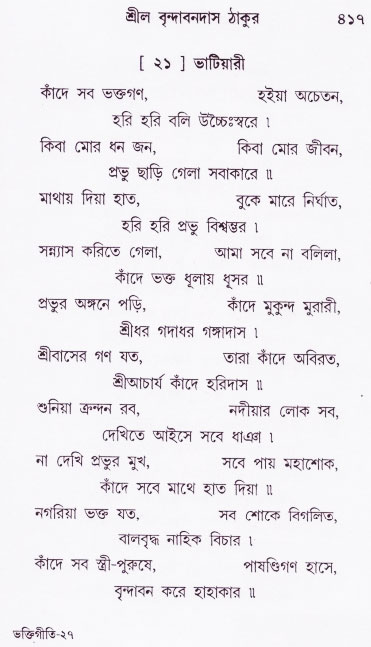 শ্রীল বৃন্দাবনদাস ঠাকুর ৪১৭
[ ২১ ] ভাটিয়ারী
কাঁদে সব ভক্তগণ, হইয়া অচেতন,
হরি হরি বলি উচ্চৈঃস্বরে ।
কিবা মোর ধন জন, কিবা মোর জীবন,
প্রভু ছাড়ি গেলা সবাকারে ॥
মাথায় দিয়া হাত, বুকে মারে নির্ঘাত,
হরি হরি প্রভু বিশ্বম্ভর ।
সন্ন্যাস করিতে গেলা, আমা সবে না বলিলা,
কাঁদে ভক্ত ধূলায় ধূসর ॥
প্রভুর অঙ্গনে পড়ি, কাঁদে মুকুন্দ মুরারী,
শ্রীধর গদাধর গঙ্গাদাস ।
শ্রীবাসের গণ যত, তারা কাঁদে অবিরত,
শ্রীআচার্য কাঁদে হরিদাস ॥
শুনিয়া ক্রন্দন রব, নদীয়ার লোক সব,
দেখিতে আইসে সবে ধাঞা ।
না দেখি প্রভুর মুখ, সবে পায় মহাশোক,
কাঁদে সবে মাথে হাত দিয়া ॥
নগরিয়া ভক্ত যত, সব শোকে বিগলিত,
বালবৃদ্ধ নাহিক বিচার ।
কাঁদে সব স্ত্রী-পুরুষে, পাষণ্ডিগণ হাসে,
বৃন্দাবন করে হাহাকার ॥
ভক্তিগীতি-২৭